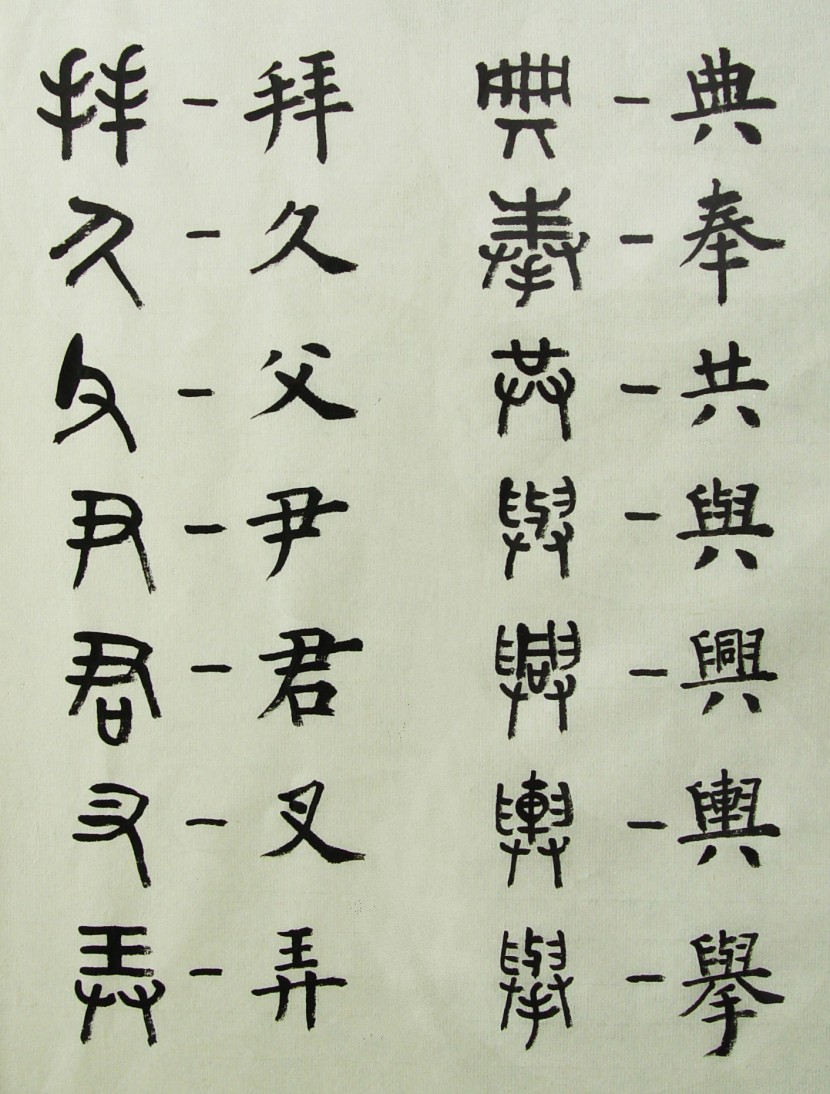 拜-拜 典-典
久-久 奉-奉
父-父 共-共
尹-尹 與-與
君-君 興-興
叉-叉 輿-輿
弄-弄 舉-舉